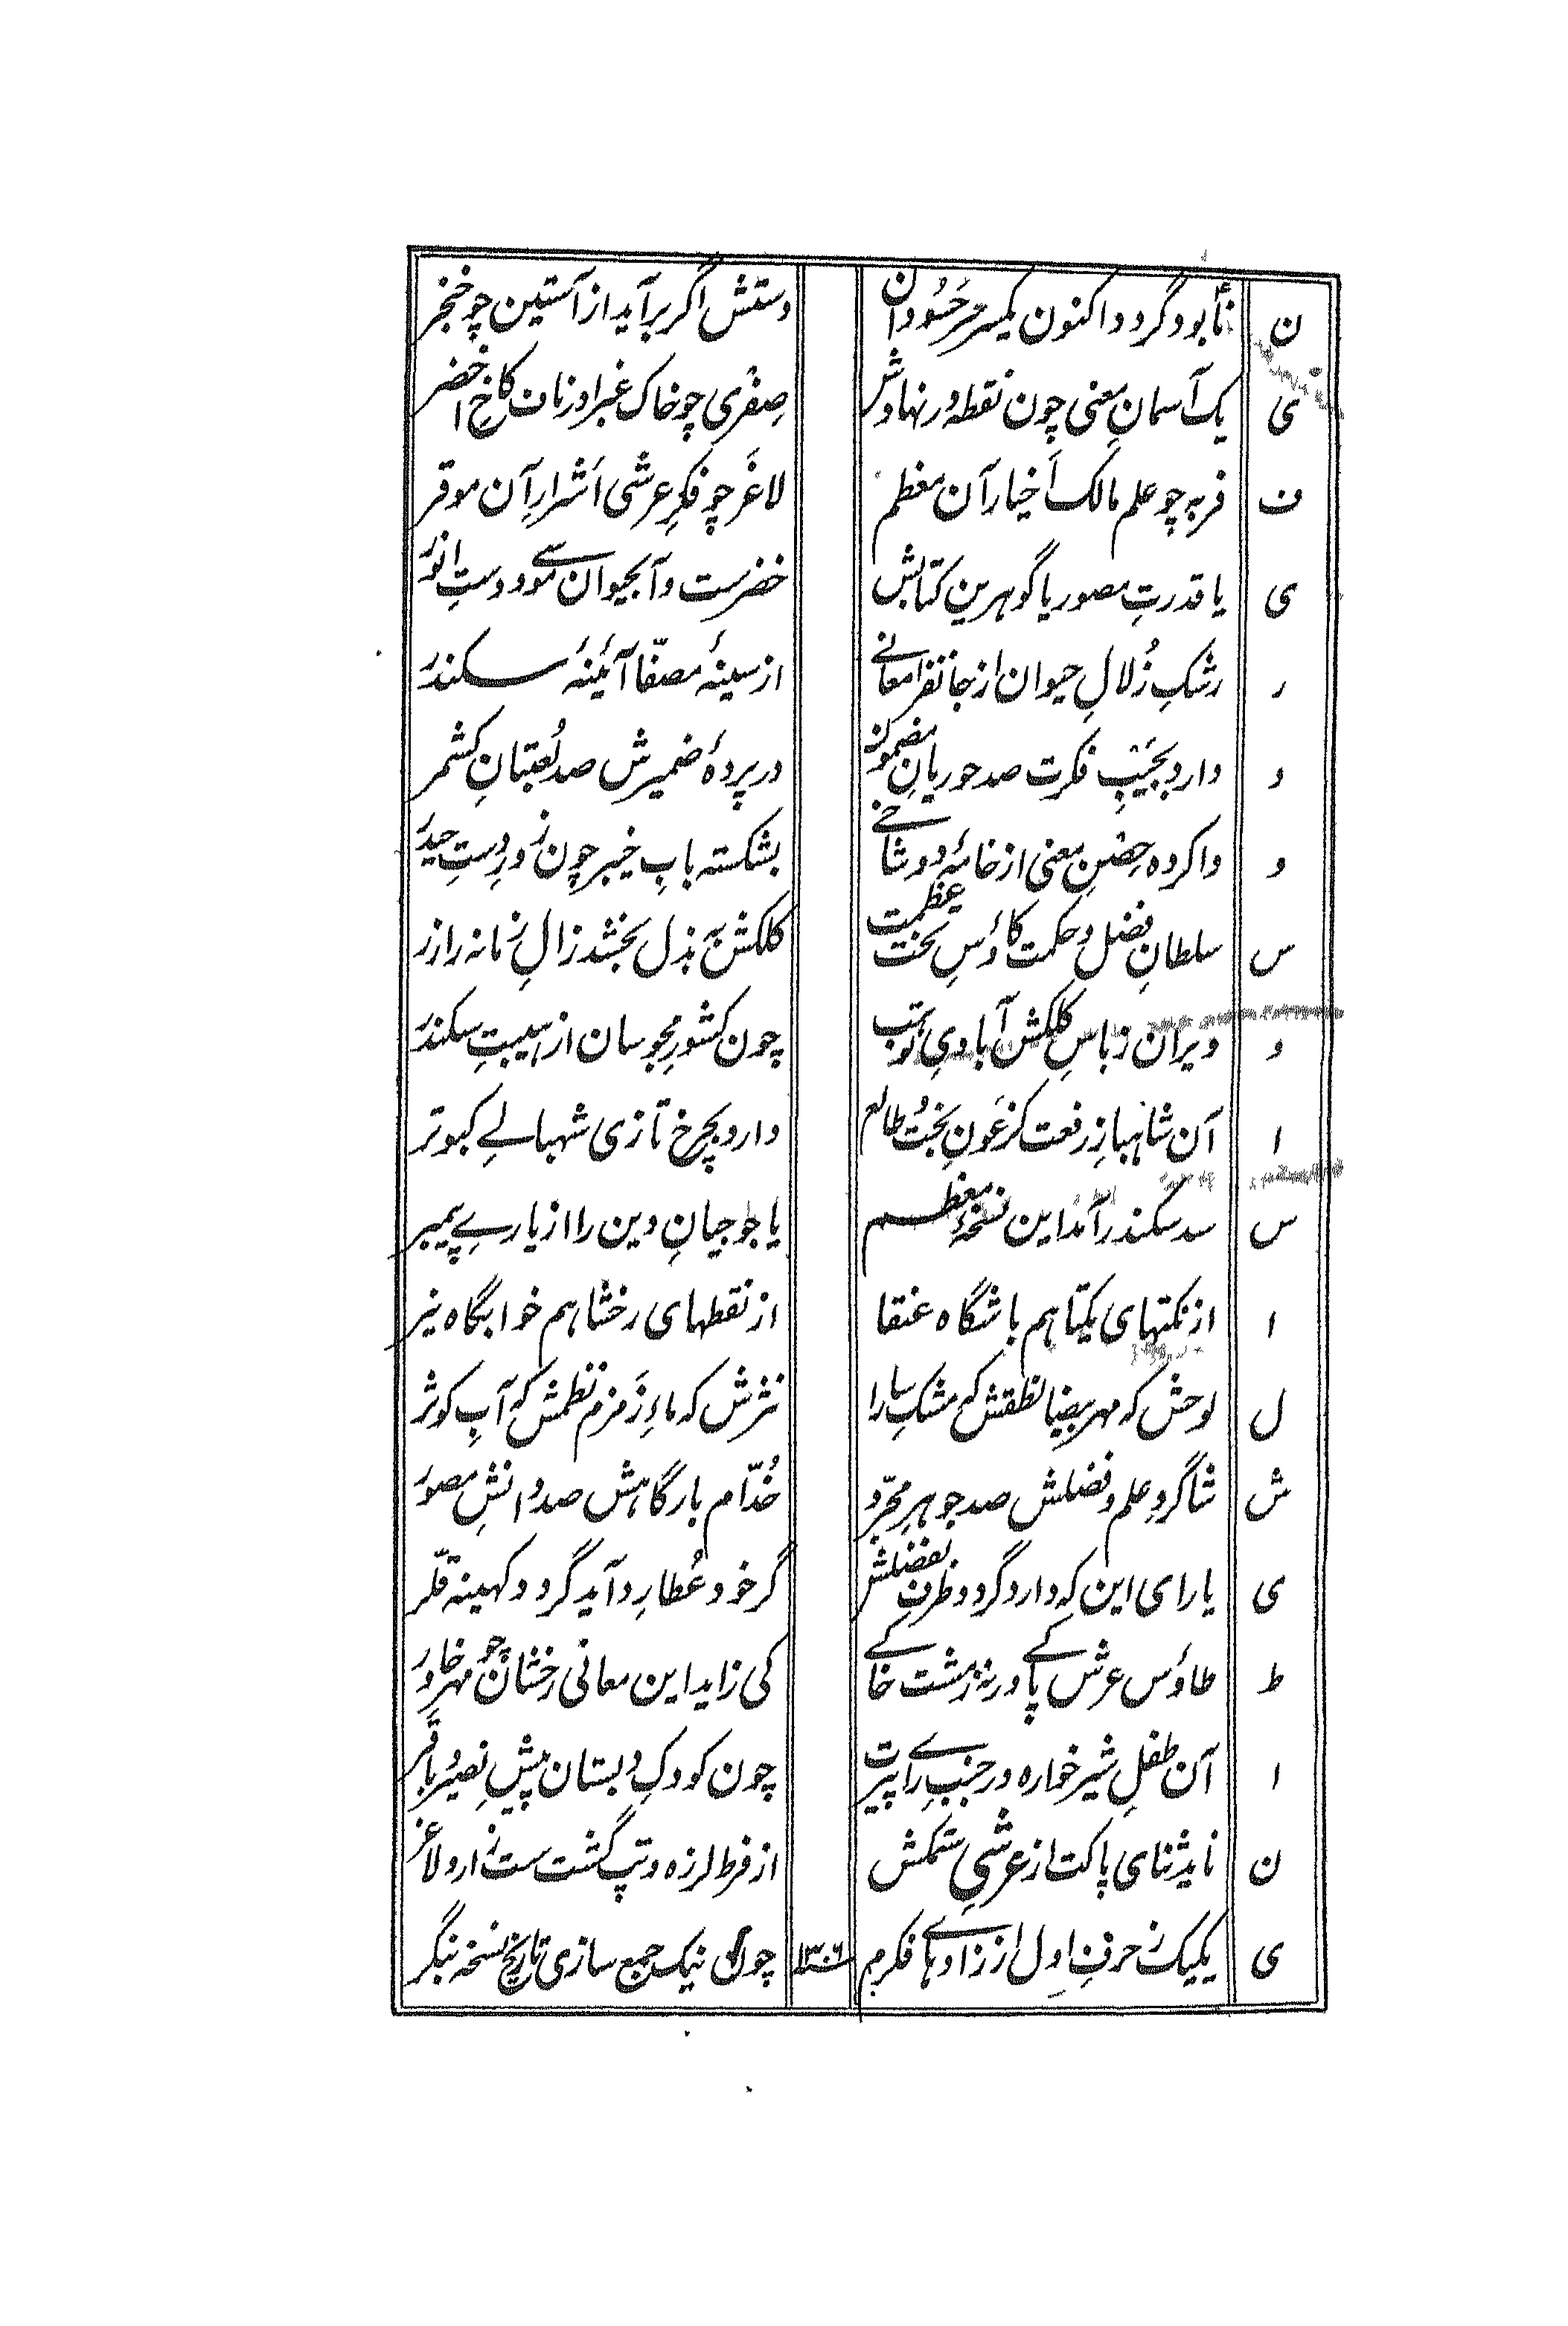 ن نابود گردد اکنون یکسر سر حسودان دستش اگر برآید از آستین چو خنجر
ی یک آسمانِ معنی چون نقطه در نهادش صِفری چو خاک غبرا وز نان کاخِ اخضر
ف فربه چو علم مالک اَخیار آن معظم لاغَر چو فکرِ عرشی اَشرارِ آن موقر
ی یا قدرتِ مصور یا گوهرین کتابش خضرست و آبحیوان موسے و دستِ انوَر
ر رشکِ زُلالِ حیوان از جانفزا معانے از سینۀ مصفّا آئینۀ سکندَر
د دارد بجَیبِ فکرت صد حوریانِ مضمون در پردۀ ضمیرش صد لُعبتانِ کشمر
و واکرده حِصنِ معنی از خامۀ دو شاخے بشکسته بابِ خیبر چون زورِ دستِ حیدَر
س سلطانِ فضل و حکمت کاؤسِ بخت عظمت کلکش به بذل بخشد زالِ زمانه را زر
و ویران ز باسِ کلکش آبادیِ تو تب چون کشورِ مجوسان از هیبتِ سکندَر
ا آن شاهبازِ رفعت کز عَونِ بختُ طالع دارد بچرخ تازی شهبالے کبوتر
س سد سکندر آمد این نسخۀ معظم یاجوجیانِ دین را از یارے پیمبر
ا از نکتهای یکتا هم باشگاه عنقا از نقطهای رخشا هم خوابگاه نیر
ل لوحش که مهر بیضا نطقش که مشکِ سارا نثرش که ماءِ زَمزم نظمش که آبِ کوثر
ش شاگردِ علم و فضلش صد جوهرِ مجرّد خُدّام بارگاهش صد دانشِ مصوَر
ی یارای این که دارد گردد ظرفِ بفضلش گر خود عُطارِد آید گردد کهینه قلّر
ط طاؤس عرش پاکے ورنه ز مشت خاکے کی زاید این معانی رخشان چو مهر خاور
ا آن طفلِ شیر خواره در جنبِ رایِ پیرت چون کودکِ دبستان پیشِ نصیرُ باقَر
ن ناید ثنای پاکت از عرشیِ ستمکش از فرط لرزه و تپ گشت ست زار و لاغر
ی یکیک ز حرفِ اولِ از زادهای فکرم ۱۳۰۶ چون نیک جمع سازی تاریخ نسخه بنگر